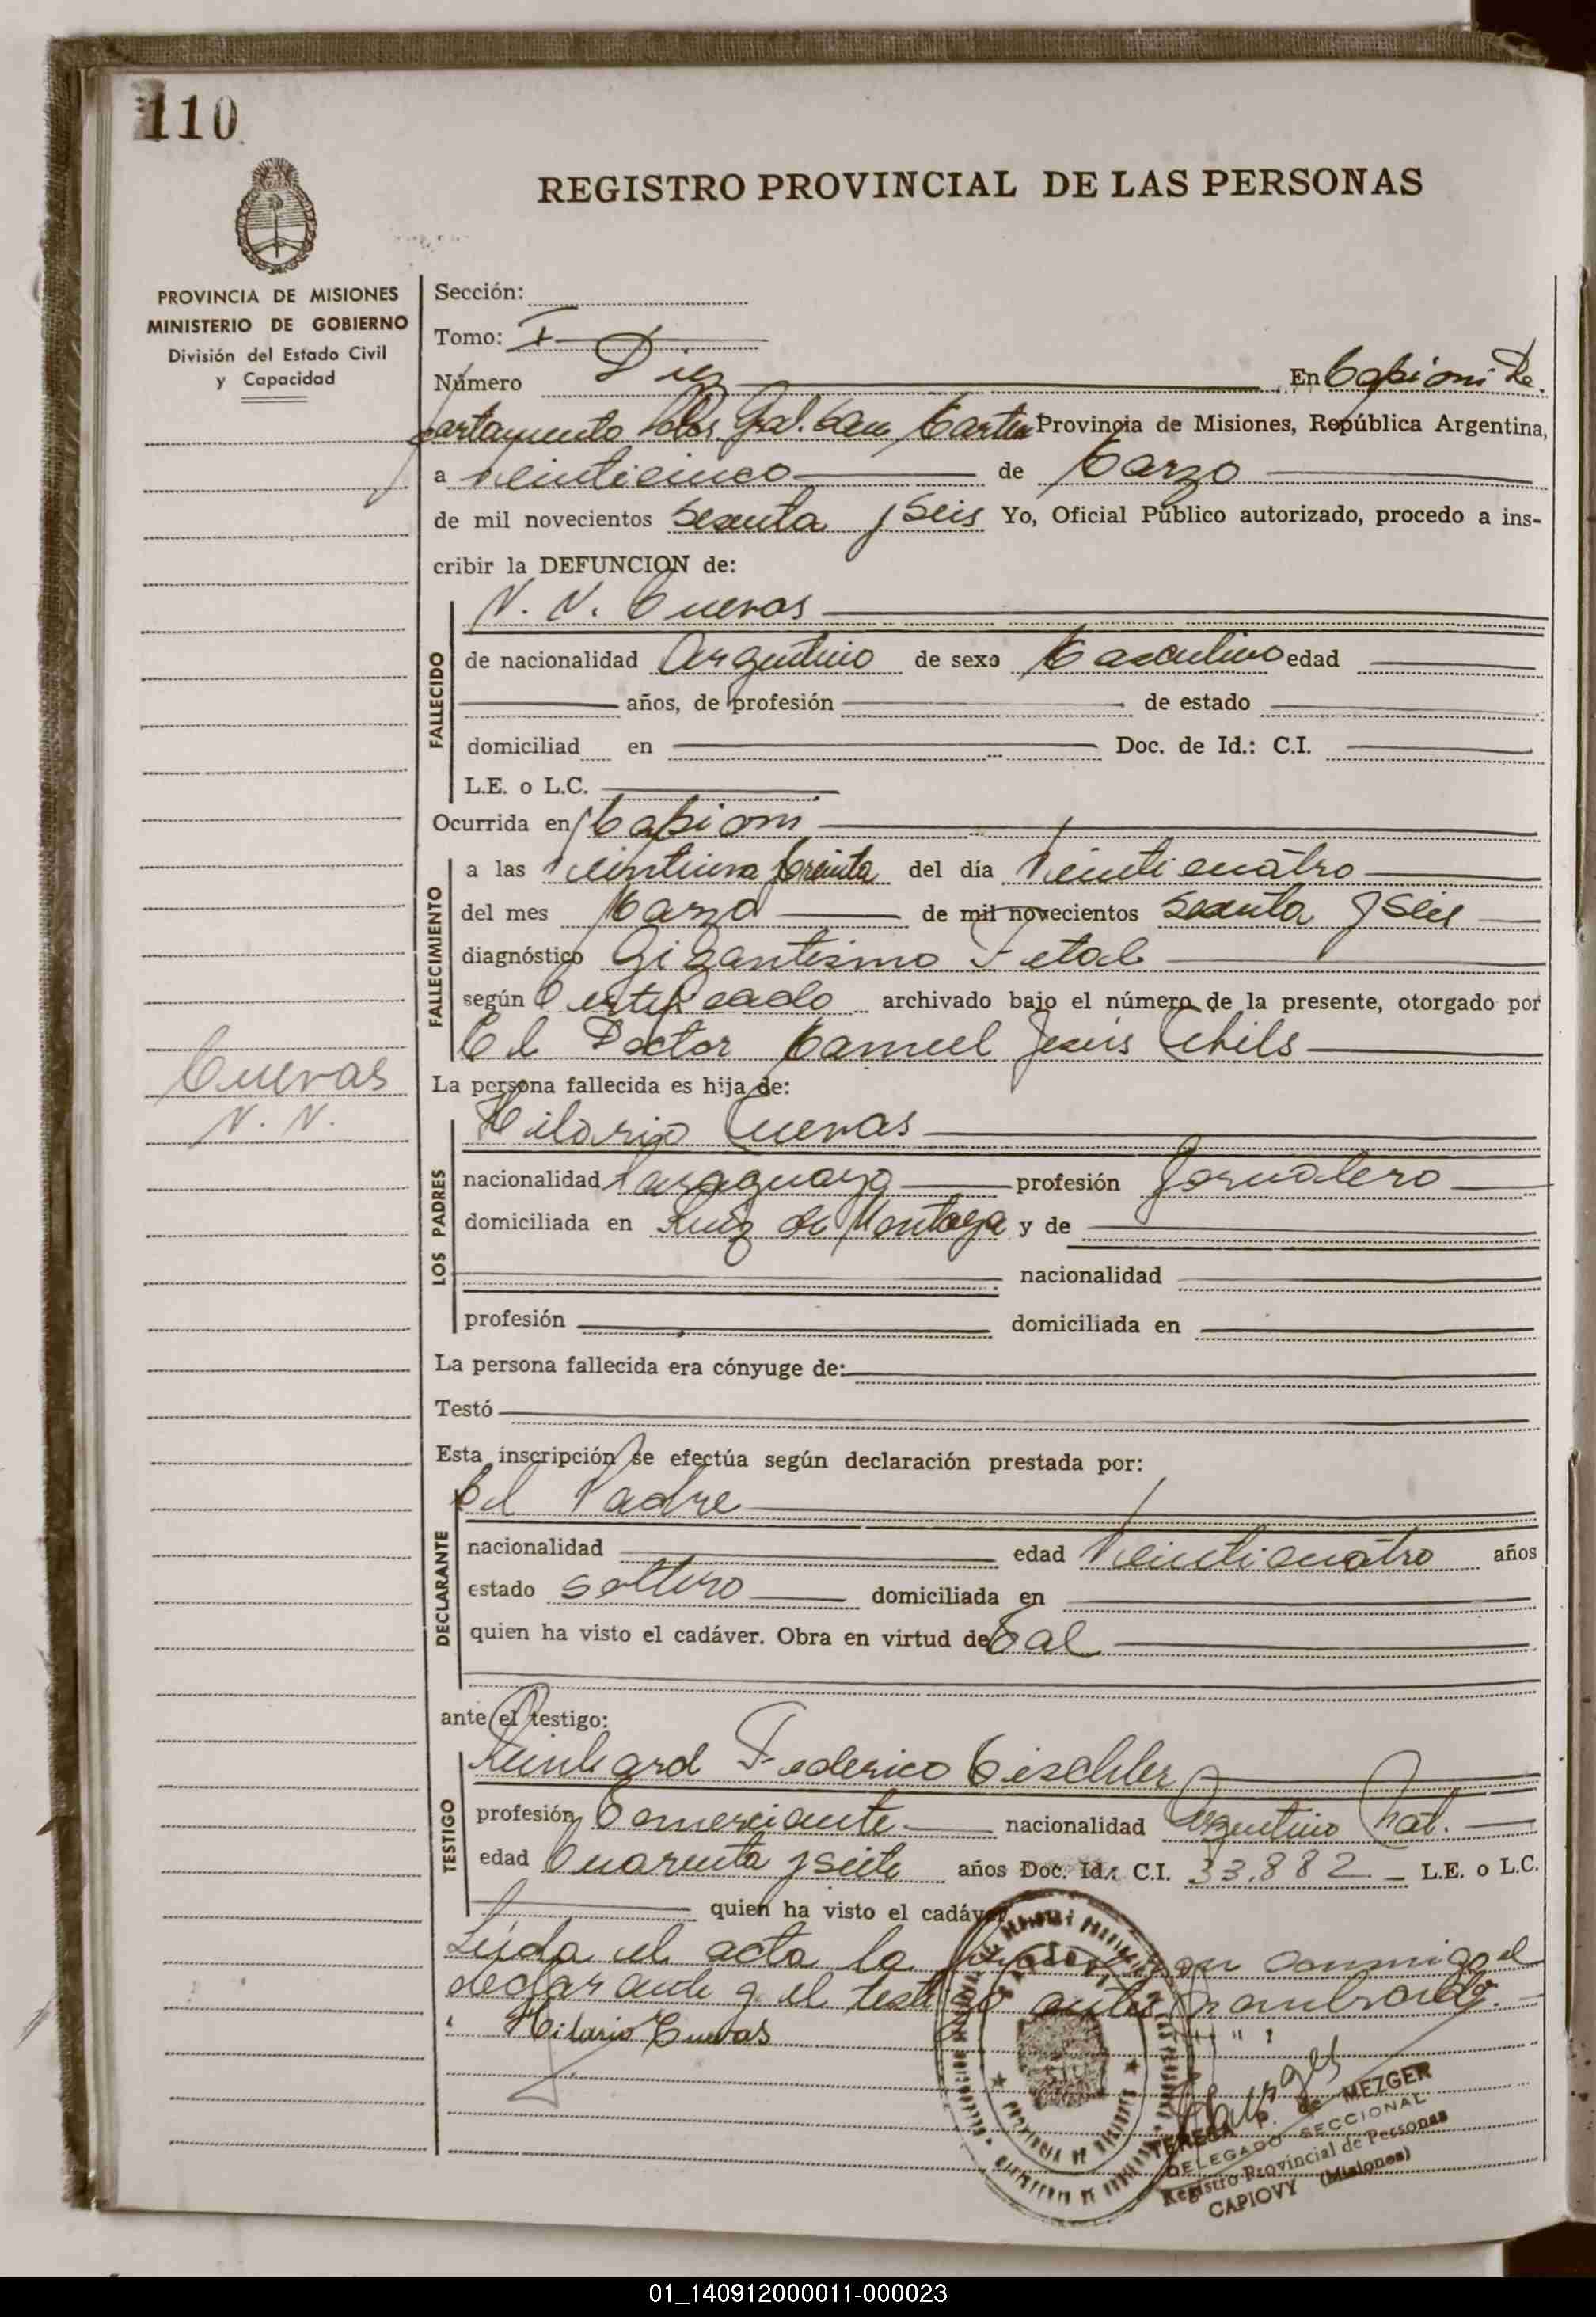 110
REGISTRO PROVINCIAL DE LAS PERSONAS
PROVINCIA DE MISIONES
MINISTERIO DE GOBIERNO
División del Estado Civil
y Capacidad
Sección:
Tomo: I
Número Diez En Capiovi De
partamento Lib. Gral. San Martin Provincia de Misiones, República Argentina,
a Veinticinco de Marzo
de mil novecientos Sesenta y Seis Yo, Oficial Público autorizado, procedo a ins-
cribir la DEFUNCION de:
N. N. Cuevas
FALLECIDO
de nacionalidad Argentino de sexo Masculino edad
años, de profesión de estado
domiciliad en Doc. de Id.: C.I.
L.E. o L.C.
Ocurrida en Capiovi
FALLECIMIENTO
a las Veintiuna treinta del día Veinticuatro
del mes Marzo de mil novecientos Sesenta y Seis
diagnóstico Gigantismo Fetal
según Certificado archivado bajo el número de la presente, otorgado por
El Doctor Manuel Jesús
Cuevas
N. N.
La persona fallecida es hija de:
Hilario Cuevas
LOS PADRES
nacionalidad Paraguaya profesión Jornalero
domiciliada en Ruiz de Montoya y de
nacionalidad
profesión domiciliada en
La persona fallecida era cónyuge de:
Testó
Esta inscripción se efectúa según declaración prestada por:
El Padre
DECLARANTE
nacionalidad edad Veinticuatro años
estado soltero domiciliada en
quien ha visto el cadáver. Obra en virtud de Tal
ante el testigo:
Reinhard Federico
TESTIGO
profesión Comerciante nacionalidad Argentino Nat.
edad Cuarenta y siete años Doc. Id.: C.I. 33.882 L.E. o L.C.
quien ha visto el cadáver
Leida el acta la conmigo el
declarante y el testigo antes nombrado.
Hilario Cuevas
TERESA P. de MEZGER
DELEGADO SECCIONAL
Registro Provincial de Personas
CAPIOVY (Misiones)
01_140912000011-000023